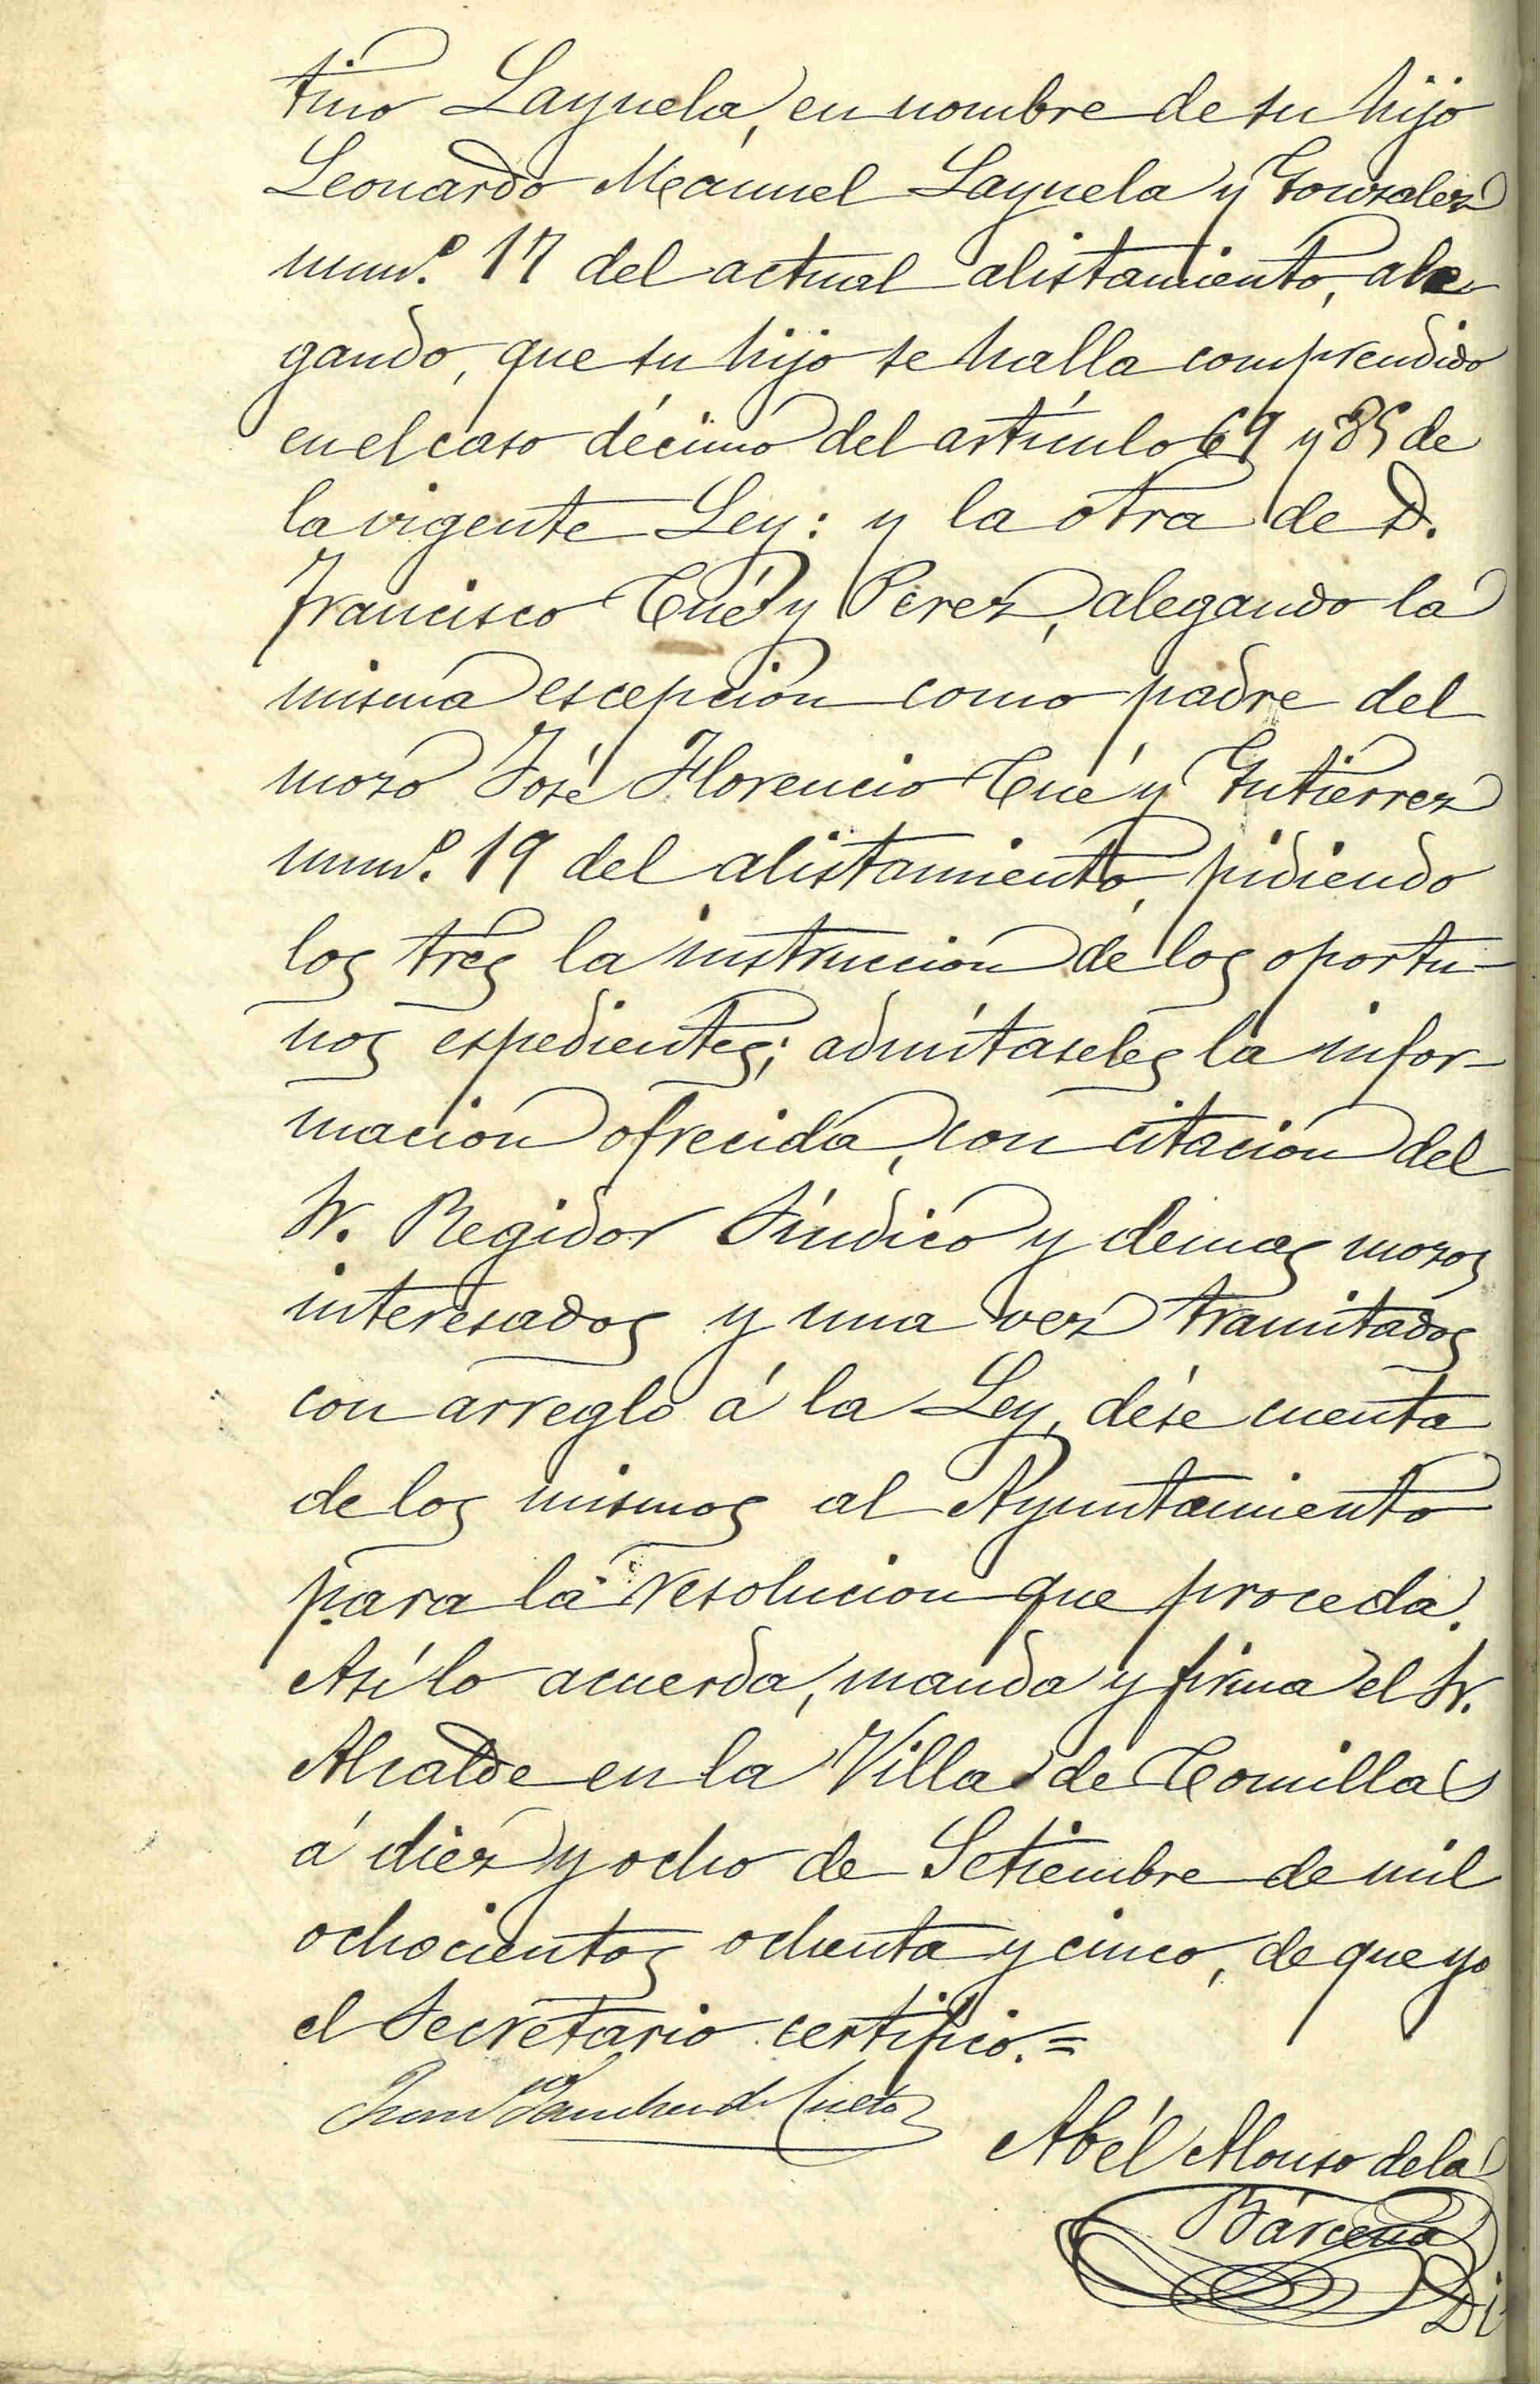 tino Layuela, en nombre de su hijo
Leonardo Manuel Layuela y Gonzalez
num.º 17 del actual alistamiento, ale-
gando, que su hijo se halla comprendido
en el caso décimo del artículo 69 y 85 de
la vigente Ley: y la otra de D.
Francisco Cué y Perez, alegando la
misma escepcion como padre del
mozo José Florencio Cué y Gutierrez
num.º 19 del alistamiento, pidiendo
los tres la instruccion de los oportu-
nos espedientes; admítaseles la infor-
macion ofrecida, con citacion del
Sr. Regidor Síndico y demas mozos
interesados y una vez tramitados
con arreglo á la Ley, dése cuenta
de los mismos al Ayuntamiento
para la resolucion que proceda.
Así lo acuerda, manda y firma el Sr.
Alcalde en la Villa de Comillas
á diez y ocho de Setiembre de mil
ochocientos ochenta y cinco, de que yo
el Secretario certifico.=
Juan Sanchez de Cueto
Abél Alonso de la
Bárcena
Di